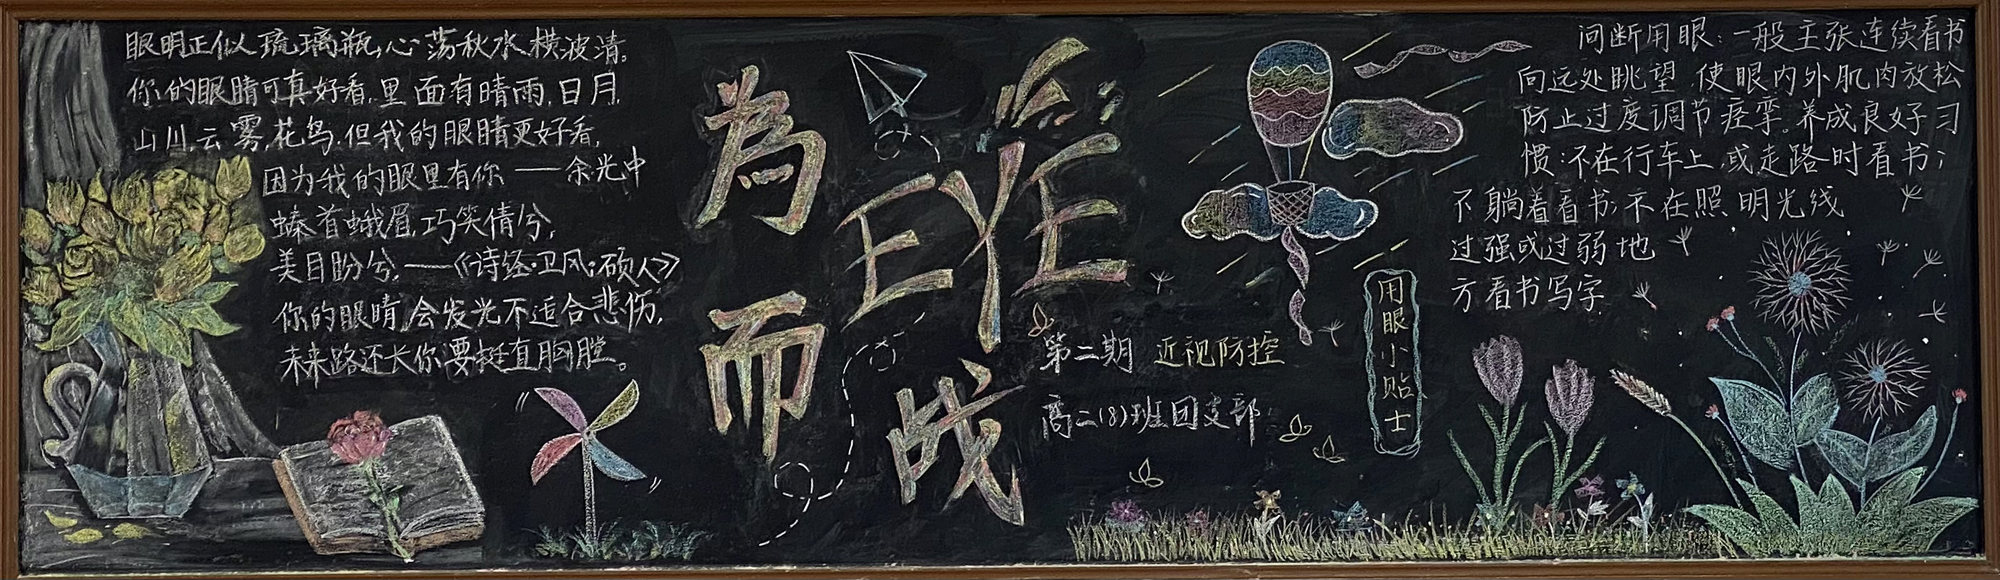 眼明正似琉璃瓶,心荡秋水横波清。
你的眼睛可真好看,里面有晴雨,日月,
山川,云雾,花鸟,但我的眼睛更好看,
因为我的眼里有你——余光中
螓首蛾眉,巧笑倩兮,
美目盼兮,——《诗经·卫风·硕人》
你的眼睛会发光不适合悲伤,
未来路还长你要挺直胸膛。
為
而
战
第二期 近视防控
高二(8)班团支部
用眼小贴士
间断用眼:一般主张连续看书
向远处眺望,使眼内外肌肉放松
防止过度调节痉挛。养成良好习
惯:不在行车上,或走路时看书;
不躺着看书;不在照明光线
过强或过弱地
方看书写字.